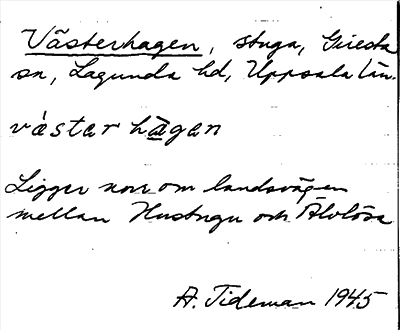 Västerhagen, stuga, Giresta
sn, Lagunda hd, Uppsala län.
västar hagan
Ligger norr om landsvägen
mellan Hustugu och Älvlösa
A. Tideman 1945